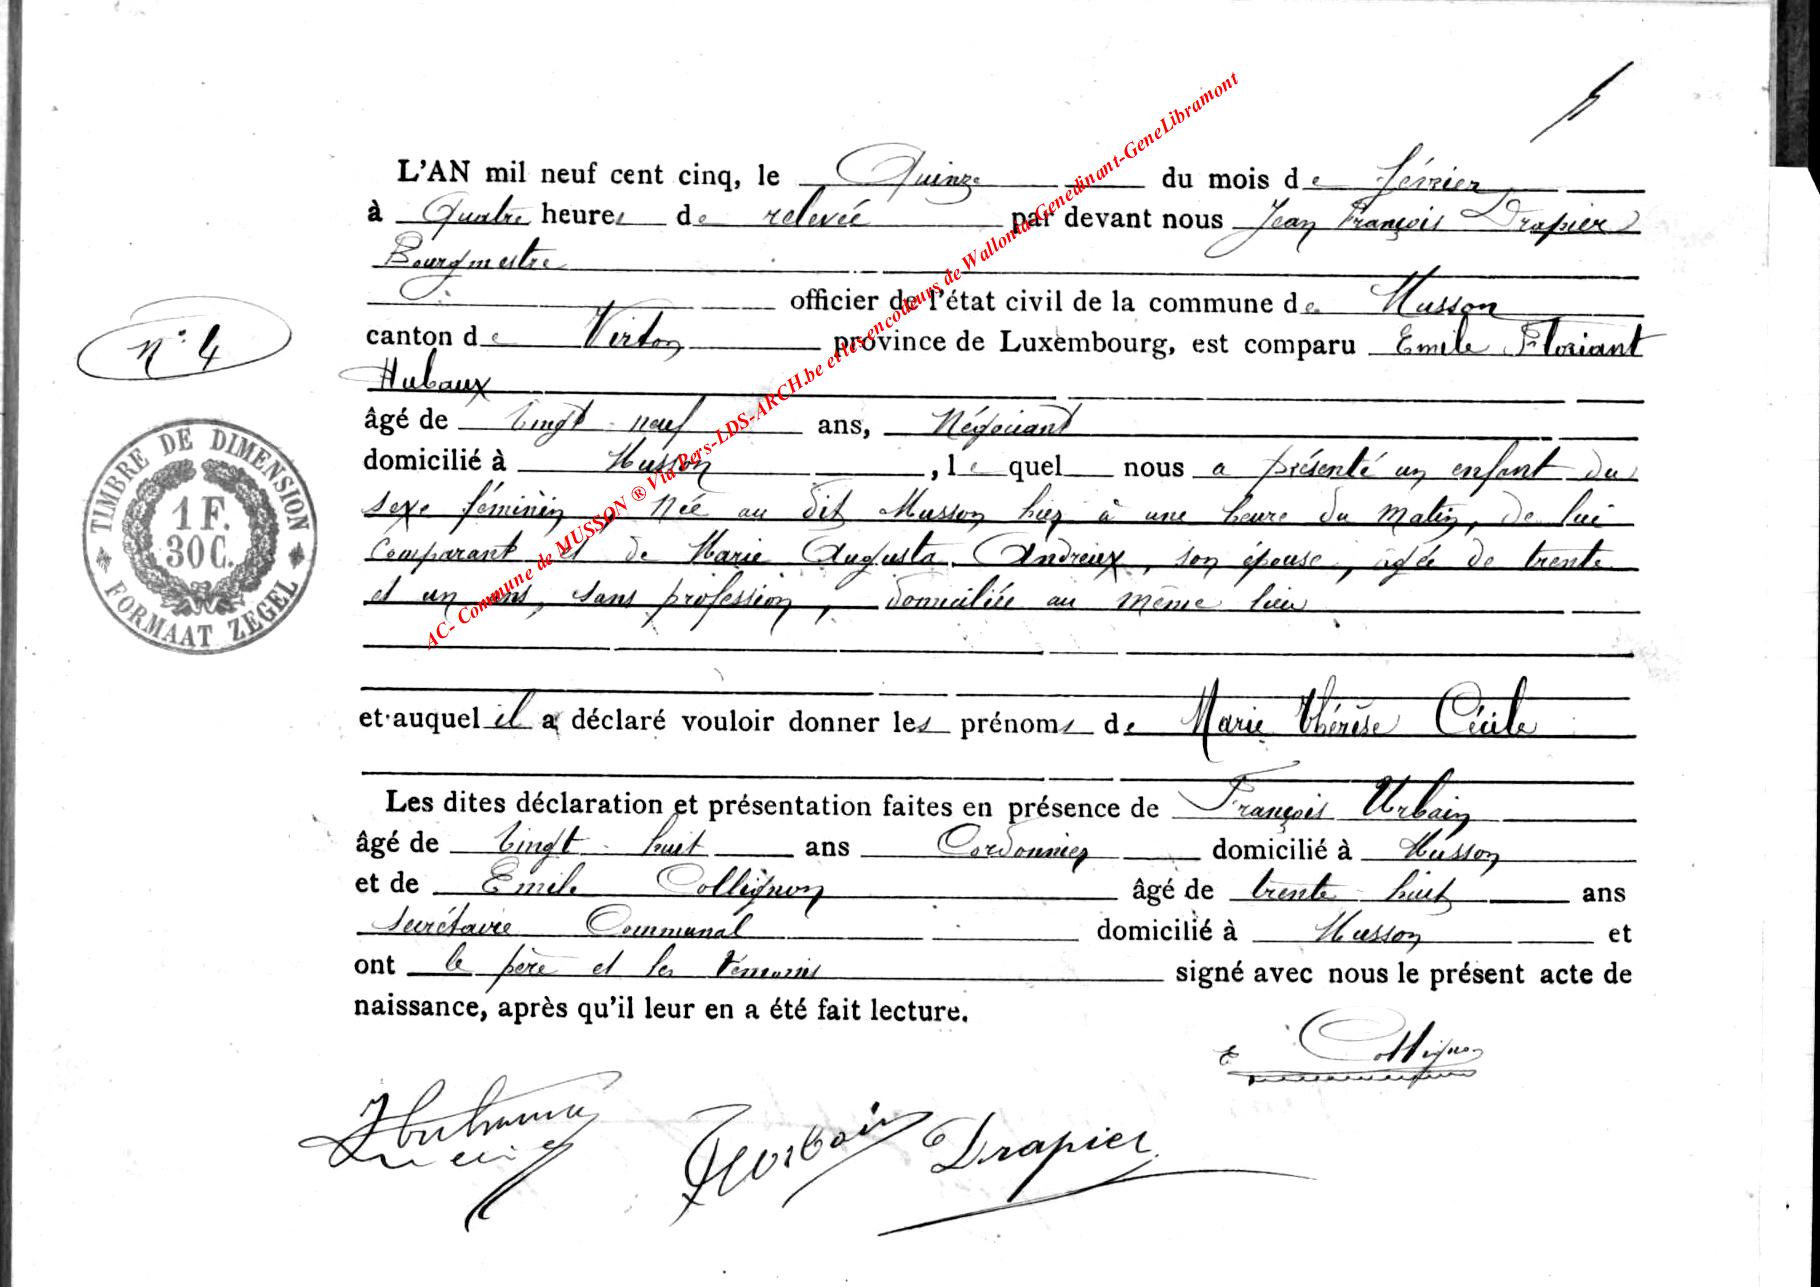 L'AN mil neuf cent cinq, le Quinze du mois de février
à Quatre heures de relevée par devant nous Jean François Drapier
Bourgmestre
officier de l'état civil de la commune de Musson
canton de Virton province de Luxembourg, est comparu Emile Floriant
Hubaux
N° 4
âgé de vingt neuf ans, Négociant
domicilié à Musson, lequel nous a présenté un enfant du
sexe féminin, Née au dit Musson hier à une heure du Matin, de lui
comparant et de Marie Augusta Andreux, son épouse, agée de trente
et un ans, sans profession, domiciliée au même lieu
TIMBRE DE DIMENSION
1 F.
30 C.
FORMAAT ZEGEL
et auquel il a déclaré vouloir donner les prénoms de Marie Thérèse Cécile
Les dites déclaration et présentation faites en présence de François Urbain
âgé de vingt huit ans Cordonnier domicilié à Musson
et de Emile Collignon âgé de trente huit ans
secrétaire Communal domicilié à Musson et
ont le père et les témoins signé avec nous le présent acte de
naissance, après qu'il leur en a été fait lecture.
E Collignon
Urbain
Drapier
AC- Commune de MUSSON ® Via Pers-LDS-ARCH.be et les encodeurs de Wallonia-Genedinant-GeneLibramont